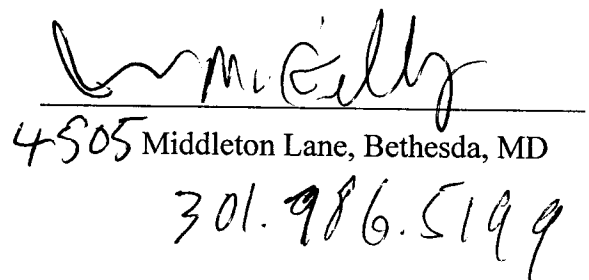 McGilly
4505 Middleton Lane, Bethesda, MD
301.986.5199